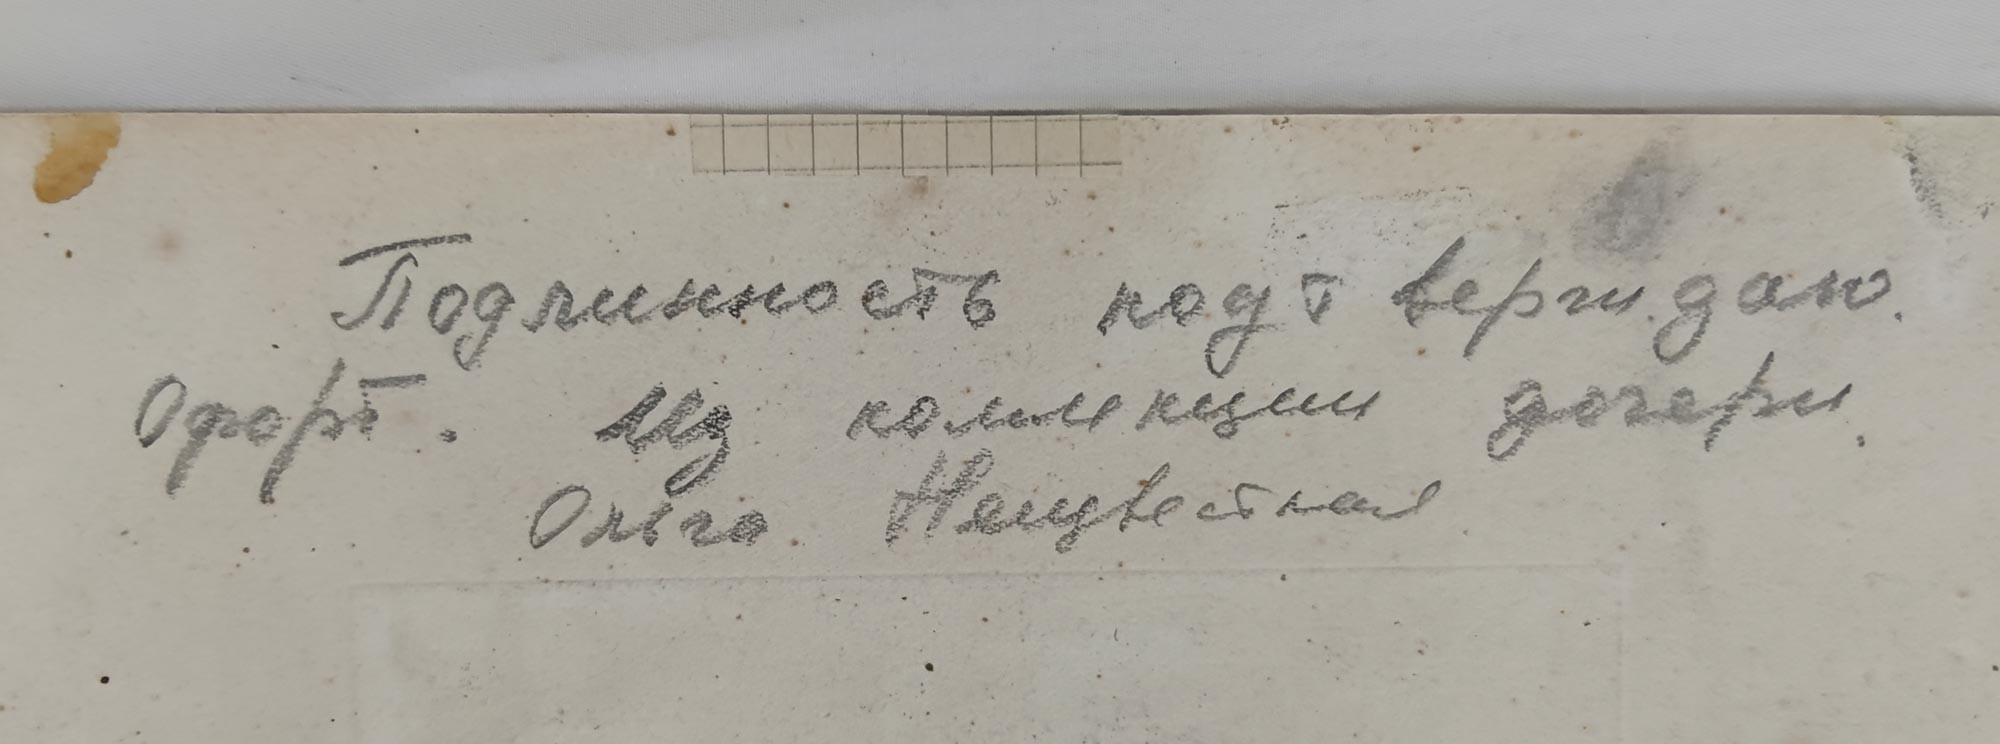 Подлинность подтверждаю.
Офорт. Из коллекции дочери.
Ольга Неизвестная